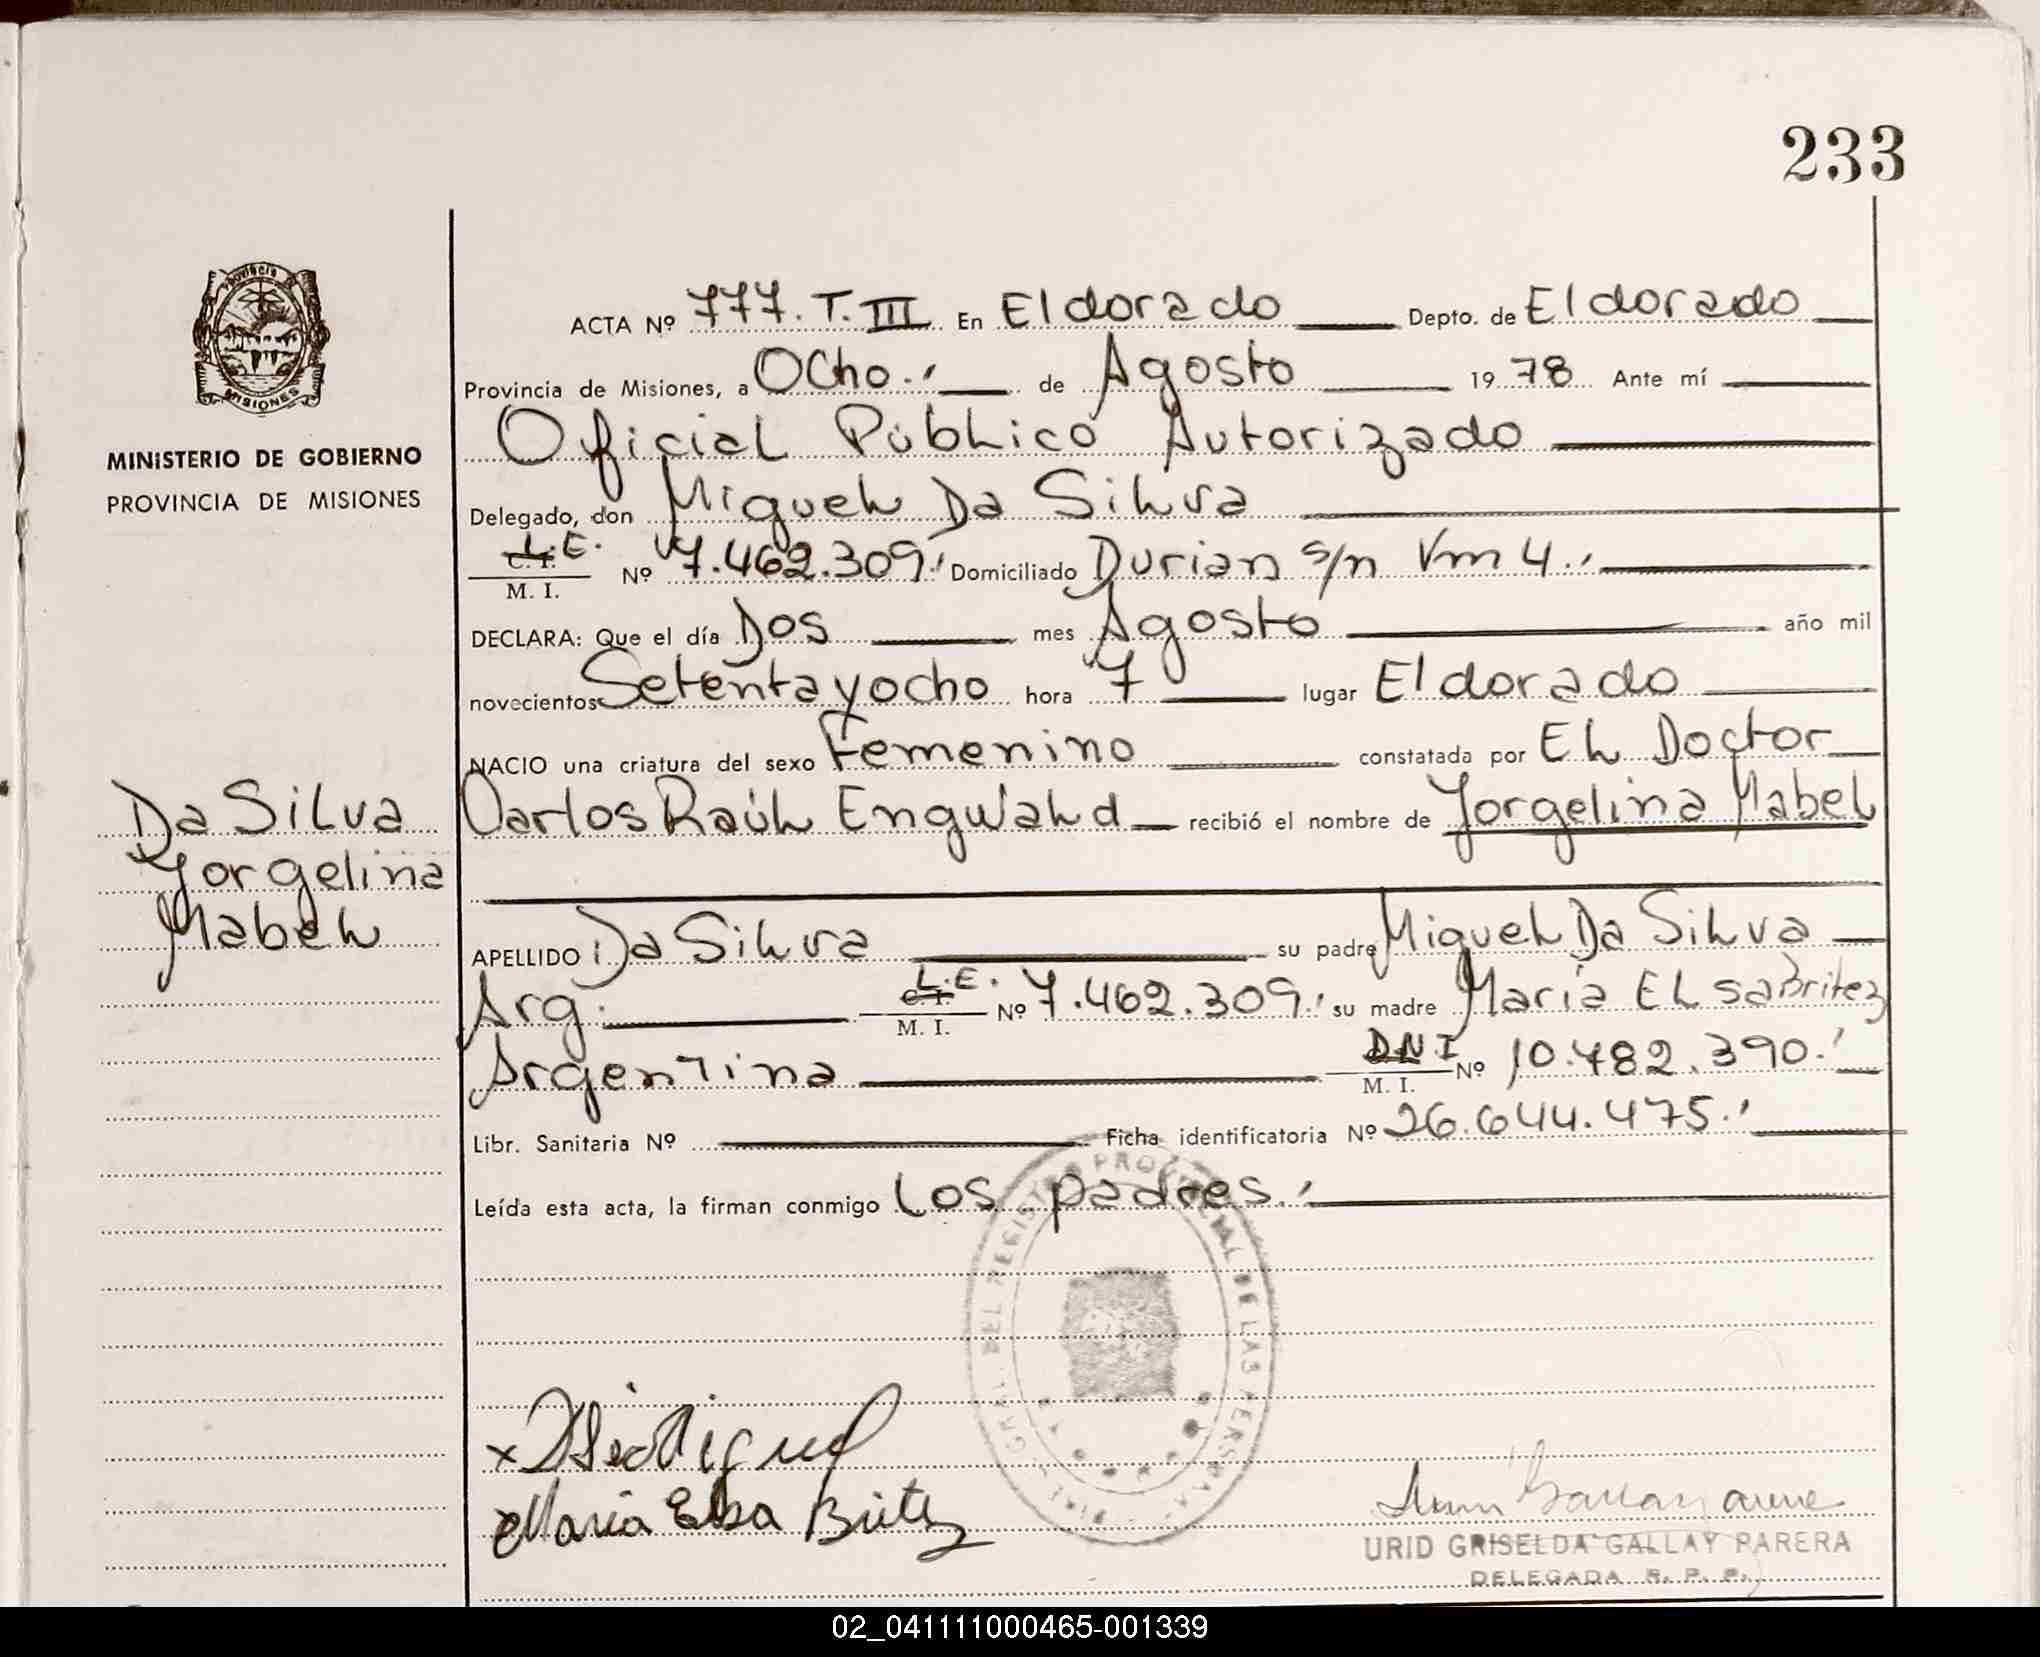 233
Provincia
MISIONES
MINISTERIO DE GOBIERNO
PROVINCIA DE MISIONES
ACTA Nº 777. T. III En Eldorado Depto. de Eldorado
Provincia de Misiones, a Ocho.' de Agosto 1978 Ante mí
Oficial Público Autorizado
Delegado, don Miguel Da Silva
L.E.
C. I.
M. I.
Nº 7.462.309.' Domiciliado Durian s/n Km 4.'
DECLARA: Que el día Dos mes Agosto año mil
novecientos Setentayocho hora 7 lugar Eldorado
NACIO una criatura del sexo Femenino constatada por El Doctor
Carlos Raúl Engwald recibió el nombre de Yorgelina Mabel
Da Silva
Yorgelina
Mabel
APELLIDO Da Silva su padre Miguel Da Silva
Arg. L.E. C. I. M. I. Nº 7.462.309.' su madre Maria Elsa Britez
Argentina DNI M. I. Nº 10.482.390.'
Libr. Sanitaria Nº Ficha identificatoria Nº 26.644.475.'
Leída esta acta, la firman conmigo los padres.'
GRAL. DEL REGISTRO PROVINCIAL DE LAS PERSONAS
Maria Elsa Britez
URID GRISELDA GALLAY PARERA
DELEGADA R. P. P.
02_041111000465-001339